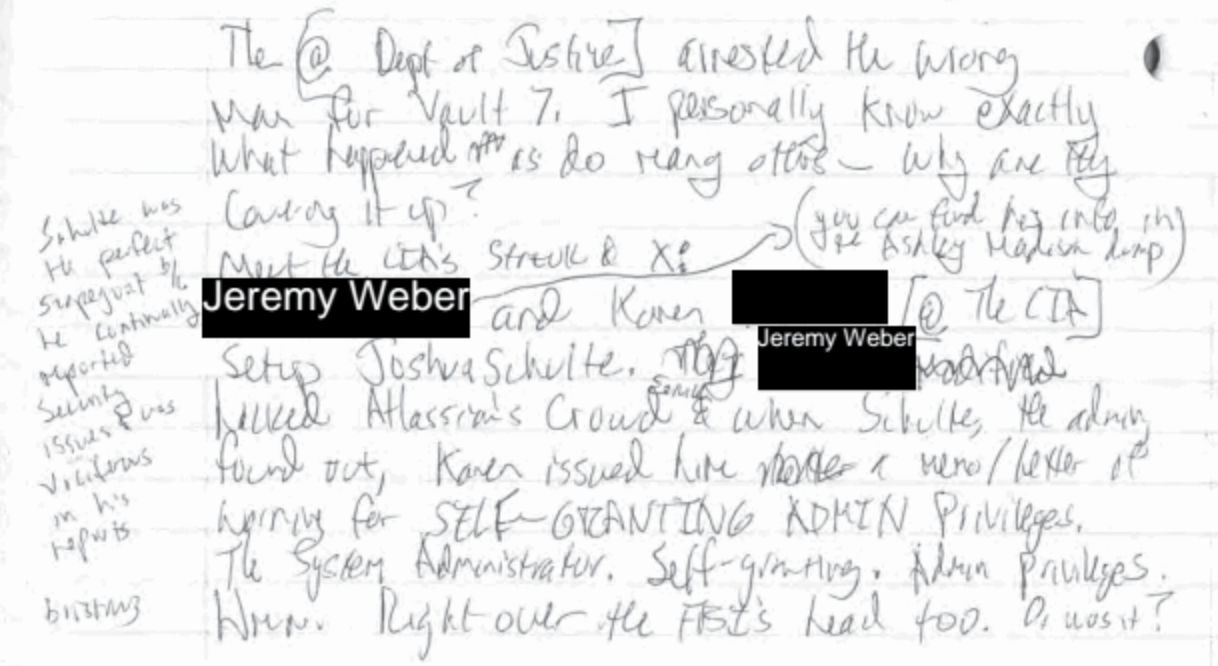 The [@ Dept of Justice] arrested the wrong
man for Vault 7. I personally know exactly
what happened as do many others – why are they
covering it up?
(you can find key info in
the Ashley Madison dump)
Meet the CIA's Strzok & X:
Jeremy Weber and Karen [@ The CIA]
Jeremy Weber
Setup Joshua Schulte.
hacked Atlassian's Crowd & when Schulte, the admin
found out, Karen issued him a memo/letter of
warning for SELF-GRANTING ADMIN Privileges.
The System Administrator. Self-granting. Admin privileges.
Hmm. Right over the FBI's head too. Or was it?
Schulte was
the perfect
scapegoat b/c
he continually
reported
Security
issues & was
vociferous
in his
reports